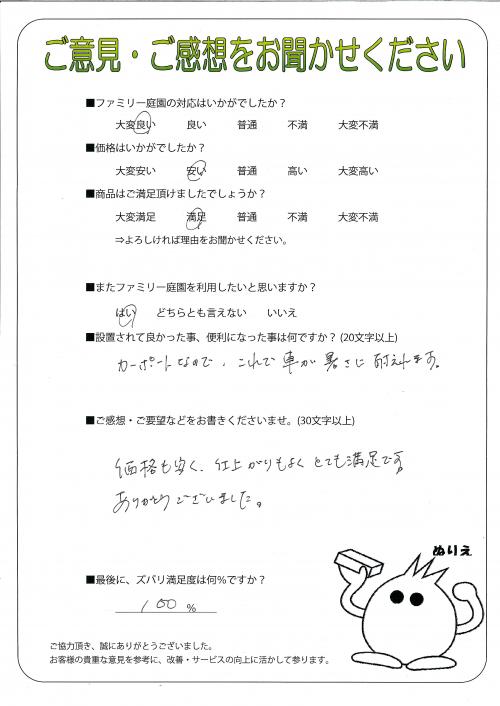 ご意見・ご感想をお聞かせください
■ファミリー庭園の対応はいかがでしたか？
大変良い 良い 普通 不満 大変不満
■価格はいかがでしたか？
大変安い 安い 普通 高い 大変高い
■商品はご満足頂けましたでしょうか？
大変満足 満足 普通 不満 大変不満
⇒よろしければ理由をお聞かせください。
■またファミリー庭園を利用したいと思いますか？
はい どちらとも言えない いいえ
■設置されて良かった事、便利になった事は何ですか？(20文字以上)
カーポートなので、これで車が暑さに耐えれます。
■ご感想・ご要望などをお書きくださいませ。(30文字以上)
価格も安く、仕上がりもよくとても満足です。
ありがとうございました。
ぬりえ
■最後に、ズバリ満足度は何％ですか？
100 %
ご協力頂き、誠にありがとうございました。
お客様の貴重な意見を参考に、改善・サービスの向上に活かして参ります。